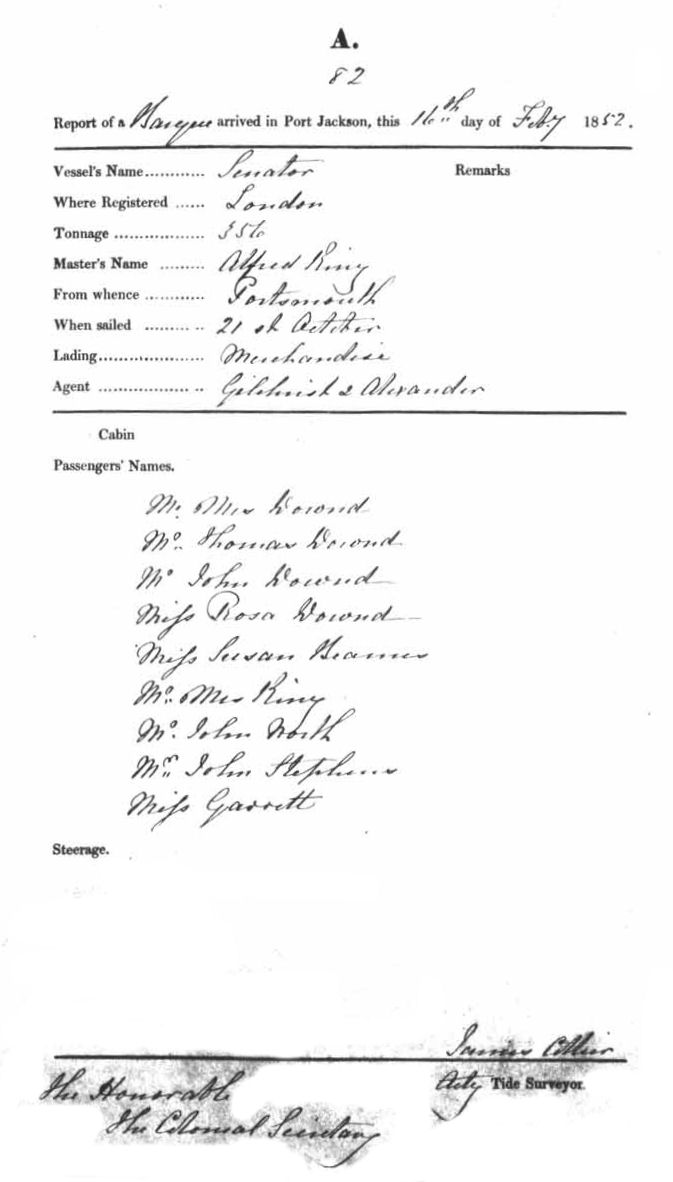 A.
82
Report of a Barque arrived in Port Jackson, this 16th day of Feby 1852.
Vessel's Name............ Senator Remarks
Where Registered ...... London
Tonnage .................. 356
Master's Name ......... Alfred King
From whence ............ Portsmouth
When sailed ......... .. 21st October
Lading..................... Merchandise
Agent .................. .. Gilchrist & Alexander
Cabin
Passengers' Names.
Mr. Mrs Downd
Mr. Thomas Downd
Mr John Downd
Miss Rosa Downd
Miss Susan
Mr. Mrs King
Mr. John North
Mr. John Stephens
Miss Garrett
Steerage.
James
Actg Tide Surveyor.
The Honorable
The Colonial Secretary